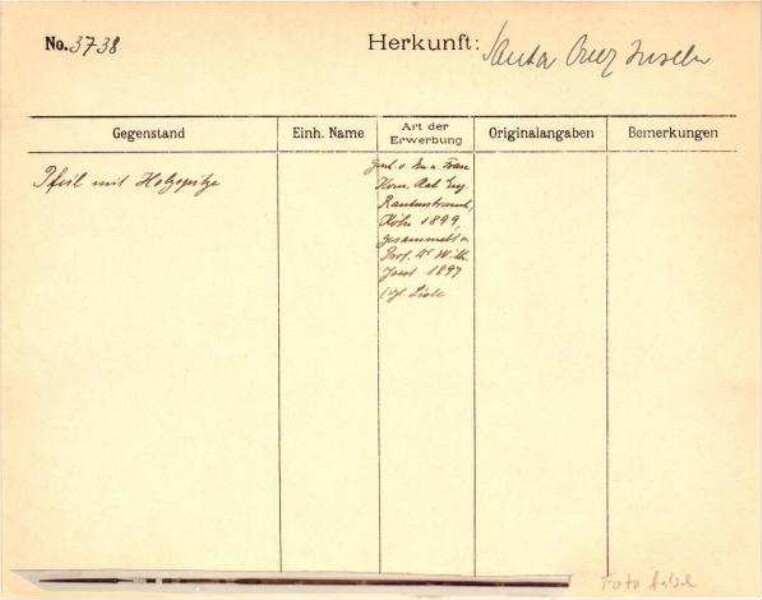 No. 3738
Herkunft: Santa Cruz Inseln
Gegenstand
Einh. Name
Art der Erwerbung
Originalangaben
Bemerkungen
Pfeil mit Holzspitze
v. Frau
Kom. Rat Eug
Rautenstrauch,
Köln 1899,
gesammelt v
Prof. Dr Wilh.
Joest 1897
Foto falsch